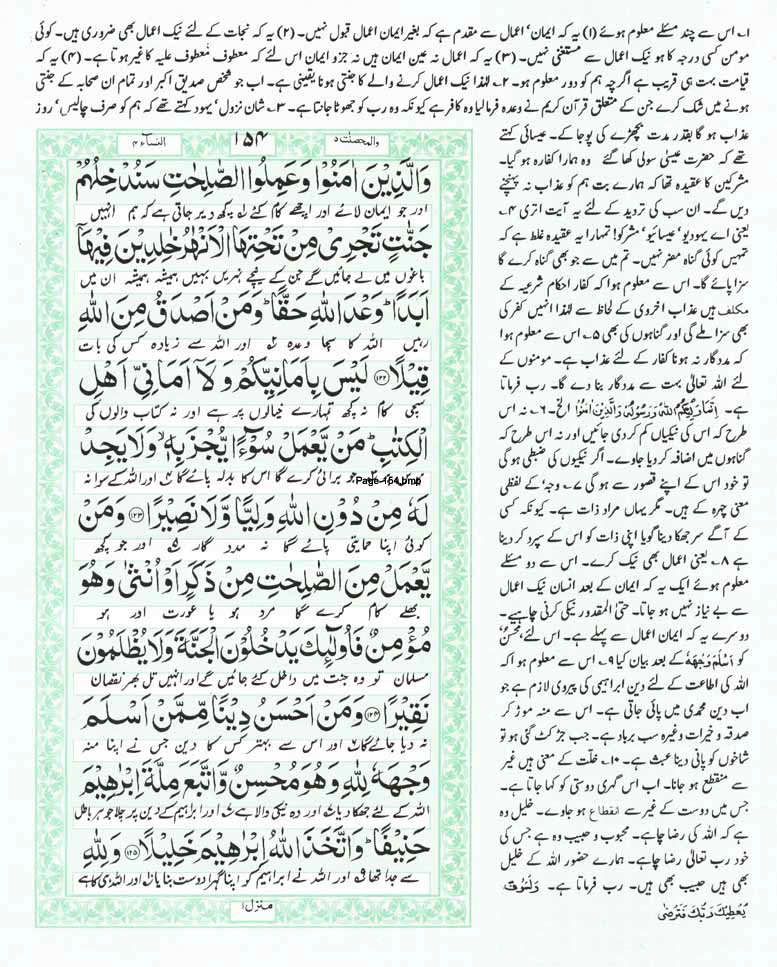 ۱۔ اس سے چند مسئلے معلوم ہوئے (۱) یہ کہ ایمان' اعمال سے مقدم ہے کہ بغیر ایمان اعمال قبول نہیں۔ (۲) یہ کہ نجات کے لئے نیک اعمال بھی ضروری ہیں۔ کوئی
مومن کسی درجہ کا ہو نیک اعمال سے مستغنی نہیں۔ (۳) یہ کہ اعمال نہ عین ایمان ہیں نہ جزو ایمان اس لئے کہ معطوف' معطوف علیہ کا غیر ہوتا ہے۔ (۴) یہ کہ
قیامت بہت ہی قریب ہے اگرچہ ہم کو دور معلوم ہو۔ ۲۔ لہٰذا نیک اعمال کرنے والے کا جنتی ہونا یقینی ہے۔ اب جو شخص صدیق اکبر اور تمام ان صحابہ کے جنتی
ہونے میں شک کرے جن کے متعلق قرآن کریم نے وعدہ فرمالیا وہ کافر ہے کیونکہ وہ رب کو جھوٹا جانتا ہے۔ ۳۔ شان نزول' یہود کہتے تھے کہ ہم کو صرف چالیس' روز
عذاب ہو گا بقدر مدت بچھڑے کی پوجا کے۔ عیسائی کہتے
تھے کہ حضرت عیسیٰ سولی کھا گئے وہ ہمارا کفارہ ہو گیا۔
مشرکین کا عقیدہ تھا کہ ہمارے بت ہم کو عذاب نہ پہنچنے
دیں گے۔ ان سب کی تردید کے لئے یہ آیت اتری ۴۔
یعنی اے یہودیو' عیسائیو' مشرکو! تمہارا یہ عقیدہ غلط ہے کہ
تمہیں کوئی گناہ مضر نہیں۔ تم میں سے جو بھی گناہ کرے گا
سزا پائے گا۔ اس سے معلوم ہوا کہ کفار احکام شرعیہ کے
مکلف ہیں عذاب اخروی کے لحاظ سے لہٰذا انہیں کفر کی
بھی سزا ملے گی اور گناہوں کی بھی ۵۔ اس سے معلوم ہوا
کہ مددگار نہ ہونا کفار کے لئے عذاب ہے۔ مومنوں کے
لئے اللہ تعالیٰ بہت سے مددگار بنا دے گا۔ رب فرماتا
ہے۔ اِنَّمَا وَلِیُّکُمُ اللہُ وَرَسُوْلُہٗ وَالَّذِیْنَ اٰمَنُوْا الخ۔ ۶۔ نہ اس
طرح کہ اس کی نیکیاں کم کر دی جائیں اور نہ اس طرح کہ
گناہوں میں اضافہ کر دیا جاوے۔ اگر نیکیوں کی ضبطی ہو گی
تو خود اس کے اپنے قصور سے ہو گی ۷۔ وجہ' کے لفظی
معنی چہرہ کے ہیں۔ مگر یہاں مراد ذات ہے۔ کیونکہ کسی
کے آگے سر جھکا دینا گویا اپنی ذات کو اس کے سپرد کر دینا
ہے ۸۔ یعنی اعمال بھی نیک کرے۔ اس سے دو مسئلے
معلوم ہوئے ایک یہ کہ ایمان کے بعد انسان نیک اعمال
سے بے نیاز نہیں ہو جاتا۔ حتیٰ المقدور نیکی کرنی چاہیے۔
دوسرے یہ کہ ایمان اعمال سے پہلے ہے۔ اس لئے، محسن'
کو اَسْلَمَ وَجْھَہٗ کے بعد بیان کیا ۹۔ اس سے معلوم ہوا کہ
اللہ کی اطاعت کے لئے دین ابراہیمی کی پیروی لازم ہے جو
اب دین محمدی میں پائی جاتی ہے۔ اس سے منہ موڑ کر
صدقہ و خیرات وغیرہ سب برباد ہے۔ جب جڑ کٹ گئی ہو تو
شاخوں کو پانی دینا عبث ہے۔ ۱۰۔ خلّت کے معنی ہیں غیر
سے منقطع ہو جانا۔ اب اس گہری دوستی کو کہا جاتا ہے۔
جس میں دوست کے غیر سے انقطاع ہو جاوے۔ خلیل وہ
ہے کہ اللہ کی رضا چاہے۔ محبوب و حبیب وہ ہے جس کی
خود رب تعالیٰ رضا چاہے۔ ہمارے حضور اللہ کے خلیل
بھی ہیں حبیب بھی ہیں۔ رب فرماتا ہے۔ وَلَسَوْفَ
یُعْطِیْکَ رَبُّکَ فَتَرْضٰی
والمحصنت ۵ ۱۵۴ النسآء ۴
وَالَّذِیْنَ اٰمَنُوْا وَعَمِلُوا الصّٰلِحٰتِ سَنُدْخِلُهُمْ
اور جو ایمان لائے اور اچھے کام کئے ۱؎ کچھ دیر جاتی ہے کہ ہم انہیں
جَنّٰتٍ تَجْرِیْ مِنْ تَحْتِهَا الْاَنْهٰرُ خٰلِدِیْنَ فِیْهَاۤ
باغوں میں لے جائیں گے جن کے نیچے نہریں بہیں ہمیشہ ہمیشہ ان میں
اَبَدًا ؕ وَعْدَ اللّٰهِ حَقًّا ؕ وَمَنْ اَصْدَقُ مِنَ اللّٰهِ
رہیں اللہ کا سچا وعدہ ۲؎ اور اللہ سے زیادہ کس کی بات
قِیْلًا ﴿۱۲۲﴾ لَیْسَ بِاَمَانِیِّكُمْ وَلَاۤ اَمَانِیِّ اَهْلِ
سچی کام نہ کچھ تمہارے خیالوں پر ہے اور نہ کتاب والوں کی
الْكِتٰبِ ؕ مَنْ یَّعْمَلْ سُوْٓءًا یُّجْزَ بِهٖ ۙ وَلَا یَجِدْ
جو برائی کرے گا اس کا بدلہ پائے گا ۴؎ اور اللہ کے سوا نہ
Page-164.bmp
لَهٗ مِنْ دُوْنِ اللّٰهِ وَلِیًّا وَّلَا نَصِیْرًا ﴿۱۲۳﴾ وَمَنْ
کوئی اپنا حمایتی پائے گا نہ مددگار ۵؎ اور جو کچھ
یَّعْمَلْ مِنَ الصّٰلِحٰتِ مِنْ ذَكَرٍ اَوْ اُنْثٰی وَهُوَ
بھلے کام کرے گا مرد ہو یا عورت اور ہو
مُؤْمِنٌ فَاُولٰٓئِكَ یَدْخُلُوْنَ الْجَنَّةَ وَلَا یُظْلَمُوْنَ
مسلمان تو وہ جنت میں داخل کئے جائیں گے اور انہیں تل بھر نقصان
نَقِیْرًا ﴿۱۲۴﴾ وَمَنْ اَحْسَنُ دِیْنًا مِّمَّنْ اَسْلَمَ
نہ دیا جائے گا ۶؎ اور اس سے بہتر کس کا دین جس نے اپنا منہ
وَجْهَهٗ لِلّٰهِ وَهُوَ مُحْسِنٌ وَّاتَّبَعَ مِلَّةَ اِبْرٰهِیْمَ
اللہ کے لئے جھکا دیا ۷؎ اور وہ نیکی والا ہے ۸؎ اور ابراہیم کے دین پر چلا جو ہر باطل
حَنِیْفًا ؕ وَاتَّخَذَ اللّٰهُ اِبْرٰهِیْمَ خَلِیْلًا ﴿۱۲۵﴾ وَلِلّٰهِ
سے جدا تھا ۹؎ اور اللہ نے ابراہیم کو اپنا گہرا دوست بنایا ۱۰؎ اور اللہ ہی کا ہے
منزل ۱